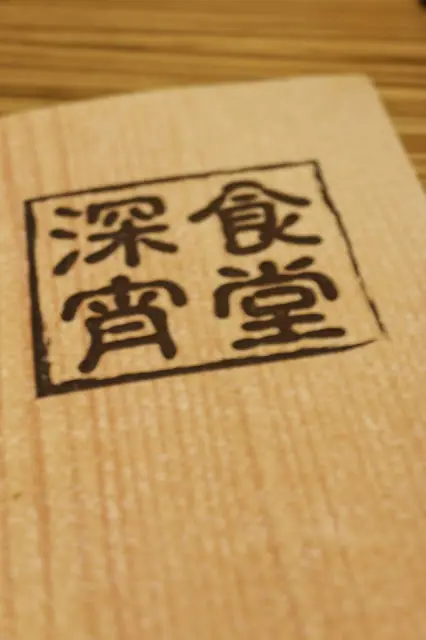 深宵
食堂